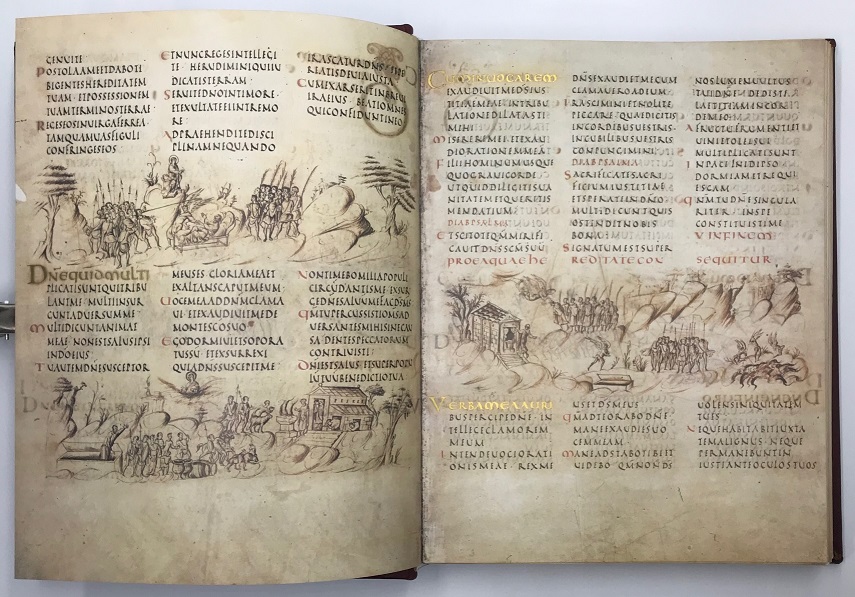 CENUITE
POSTOLAAMEETDABOTI
BIGENTESHEREDITATEM
TUAM · ETPOSSESSIONEM
TUAMTERMINOSTERRAE
REGESEOSINUIRGAFERREA
TAMQUAMUASFIGULI
CONFRINGESEOS
ETNUNCREGESINTELLEGI
TE · ERUDIMINIQUIIU
DICATISTERRAM ·
SERUITEDNOINTIMORE ·
ETEXULTATEEIINTREMO
RE
ADPRAEHENDITEDISCI
PLINAMNEQUANDO
IRASCATURDNS
RIATISDEUIAIUSTA
CUMEXARSERITINBREUI
IRAEIUS · BEATIOMNES
QUICONFIDUNTINEO
DNEQUIDMULTI
PLICATISUNTQUITRIBU
LANTME · MULTIINSUR
GUNTADUERSUMME ·
MULTIDICUNTANIMAE
MEAE · NONESTSALUSIPSI
INDOEIUS
TUAUTEMDNESUSCEPTOR
MEUSES · GLORIAMEAET
EXALTANSCAPUTMEUM ·
UOCEMEAADDNMCLAMA
UI · ETEXAUDIUITMEDE
MONTESCOSUO
EGODORMIUIETSOPORA
TUSSU · ETEXSURREXI
QUIADNSSUSCEPITME ·
NONTIMEBOMILIAPOPULI
CIRCUDANTISME · EXSUR
GEDNESALUUMEFACDSMS
QMTUPERCUSSISTIOMSAD
UERSANTESMIHISINECAU
SA · DENTESPECCATORUM
CONTRIUISTI ·
DNIESTSALUS · ETSUPERPOPU
LUTUUBENEDICTIOTUA
CUMINUOCAREM
EXAUDIUITMEDSIUS
TITIAEMEAE · INTRIBU
LATIONEDILATASTI
MIHI
MISEREREMEI · ETEXAU
DIORATIONEMMEA
FILIIHOMINUMUSQUE
QUOGRAUICORDE ·
UTQUIDDILIGITISUA
NITATEM · ETQUERITIS
MENDATIUM
DIABPSALMA
ETSCITOTEQMMIRIFI
CAUITDNSSCMSUU
DNSEXAUDIETMECUM
CLAMAUEROADEUM ·
IRASCIMINIETNOLITE
PECCARE · QUAEDICITIS
INCORDIBUSUESTRIS ·
INCUBILIBUSUESTRIS
CONPUNGIMINI
DIABPSALMA
SACRIFICATESACRI
FICIUMIUSTITIAE
ETSPERATEINDNO ·
MULTIDICUNTQUIS
OSTENDITNOBIS
BONA ·
SIGNATUMESTSUPER
NOSLUMENUULTUS
TUIDNE · DEDISTI
LAETITIAMINCOR
DEMEO ·
AFRUCTUFRUMENTI
UINIETOLEISUI
MULTIPLICATISUNT
INPACEINIDIPSO
DORMIAMETREQUI
ESCAM ·
QNMTUDNESINGULA
RITER · INSPE
CONSTITUISTIME
INFINEM
PROEAQUAEHE REDITATECON SEQUITUR
VERBAMEAAURI
BUSPERCIPEDNE · IN
TELLEGECLAMOREM
MEUM
INTENDEUOCIORATI
ONISMEAE · REXME
USETDSMEUS
QMADTEORABODNE
MANEEXAUDIESUO
CEMMEAM ·
MANEADSTABOTIBIET
UIDEBO · QMNONDS
UOLENSINIQUITATEM
TUES ·
NEQUEHABITABITIUXTA
TEMALIGNUS · NEQUE
PERMANEBUNTIN
IUSTIANTEOCULOSTUOS